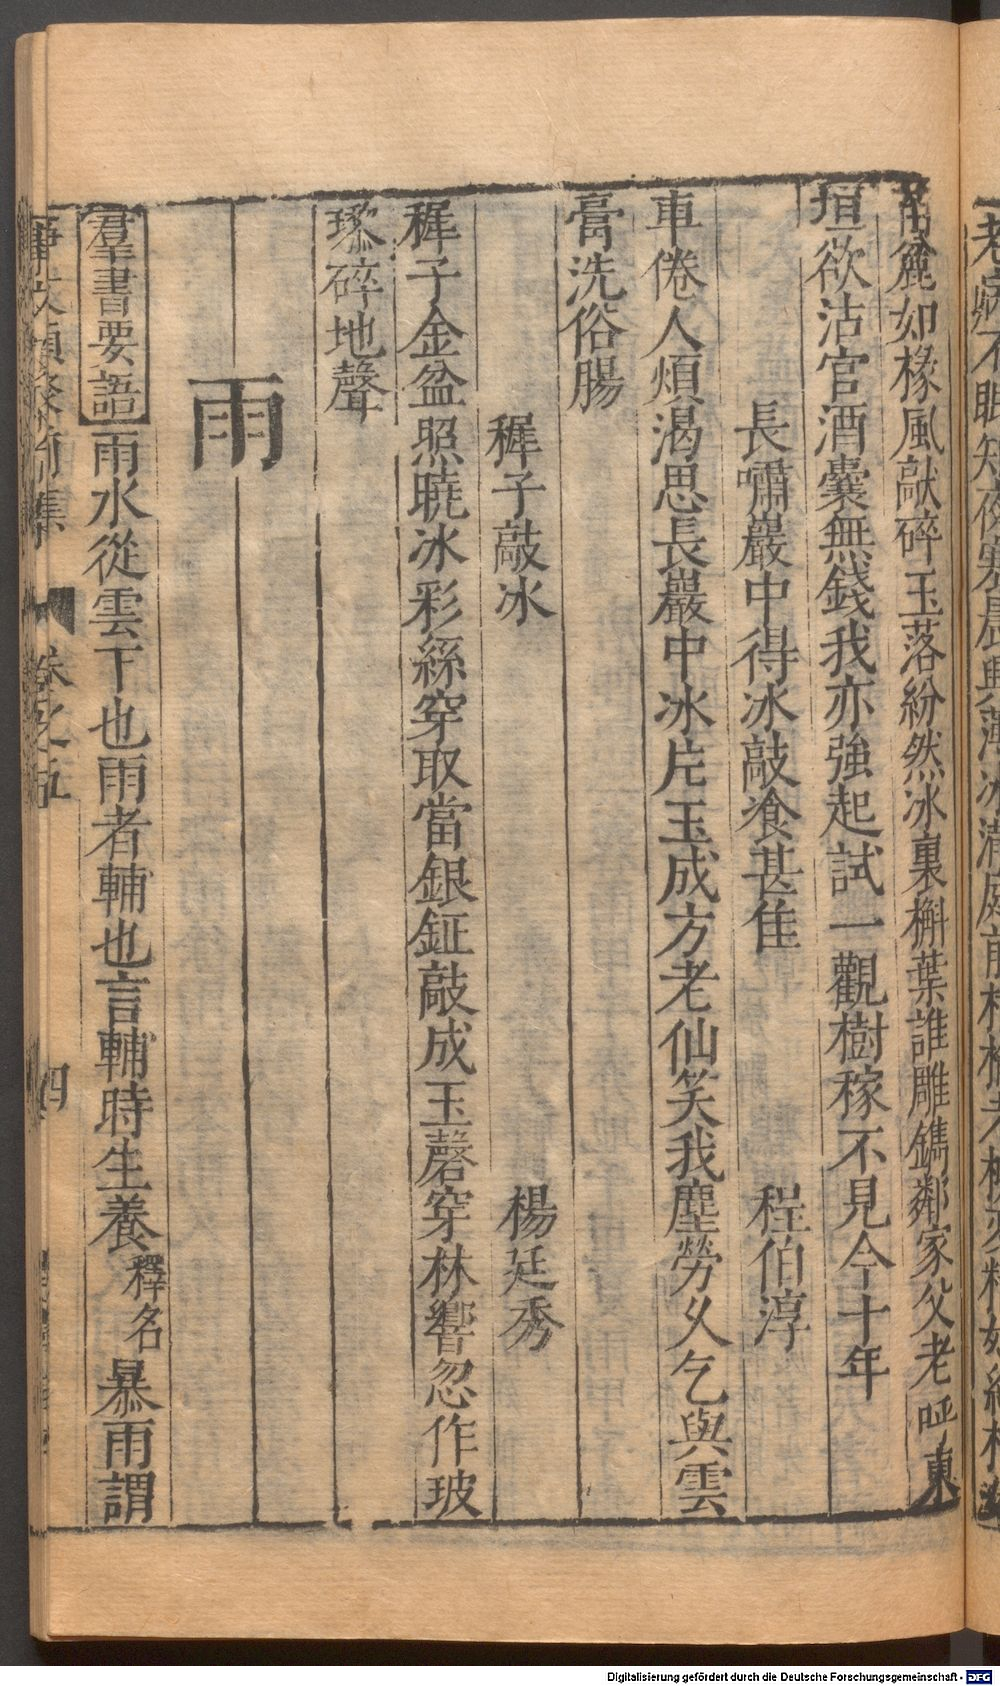 老病不眠知夜寒晨興
麄如椽風敲碎玉落紛然冰裏槲葉誰雕鐫鄰家父老呼東
垣欲沽官酒囊無錢我亦強起試一觀樹稼不見今十年
長嘯巖中得冰敲飡甚佳 程伯淳
車倦人煩渴思長巖中冰片玉成方老仙笑我塵勞久乞與雲
膏洗俗腸
穉子敲冰 楊廷秀
穉子金盆照曉冰彩絲穿取當銀鉦敲成玉磬穿林響忽作玻
瓈碎地聲
雨
羣書要語雨水從雲下也雨者輔也言輔時生養釋名暴雨謂
事文類聚前集 卷之五 四
Digitalisierung gefördert durch die Deutsche Forschungsgemeinschaft - DFG